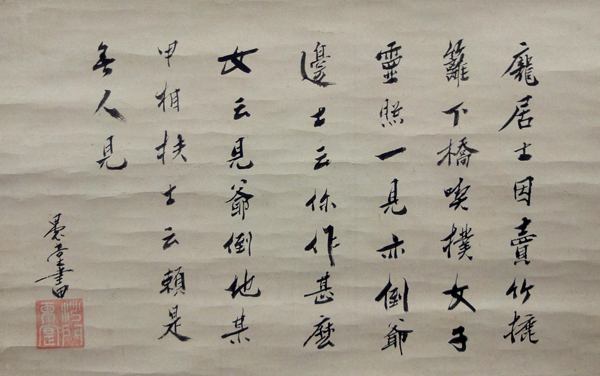 龐居士因賣竹摝
籬下橋喫撲女子
靈照一見亦倒爺
邊士云你作甚麼
女云見爺倒地某
甲相扶士云賴是
無人見
書